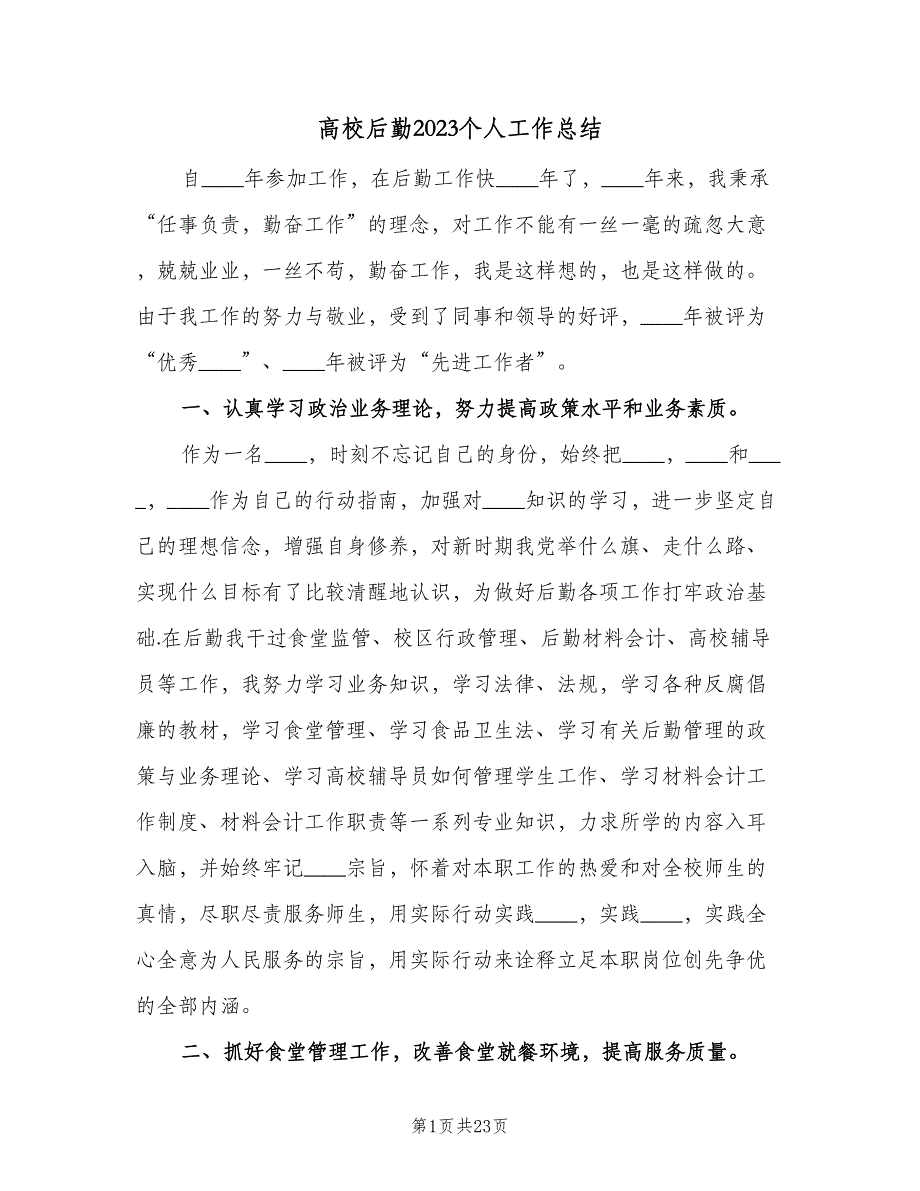 高校后勤2023个人工作总结
自____年参加工作，在后勤工作快____年了，____年来，我秉承
“任事负责，勤奋工作”的理念，对工作不能有一丝一毫的疏忽大意
，兢兢业业，一丝不苟，勤奋工作，我是这样想的，也是这样做的。
由于我工作的努力与敬业，受到了同事和领导的好评，____年被评为
“优秀____”、____年被评为“先进工作者”。
一、认真学习政治业务理论，努力提高政策水平和业务素质。
作为一名____，时刻不忘记自己的身份，始终把____，____和___
_，____作为自己的行动指南，加强对____知识的学习，进一步坚定自
己的理想信念，增强自身修养，对新时期我党举什么旗、走什么路、
实现什么目标有了比较清醒地认识，为做好后勤各项工作打牢政治基
础.在后勤我干过食堂监管、校区行政管理、后勤材料会计、高校辅导
员等工作，我努力学习业务知识，学习法律、法规，学习各种反腐倡
廉的教材，学习食堂管理、学习食品卫生法、学习有关后勤管理的政
策与业务理论、学习高校辅导员如何管理学生工作、学习材料会计工
作制度、材料会计工作职责等一系列专业知识，力求所学的内容入耳
入脑，并始终牢记____宗旨，怀着对本职工作的热爱和对全校师生的
真情，尽职尽责服务师生，用实际行动实践____，实践____，实践全
心全意为人民服务的宗旨，用实际行动来诠释立足本职岗位创先争优
的全部内涵。
二、抓好食堂管理工作，改善食堂就餐环境，提高服务质量。
第1页共23页